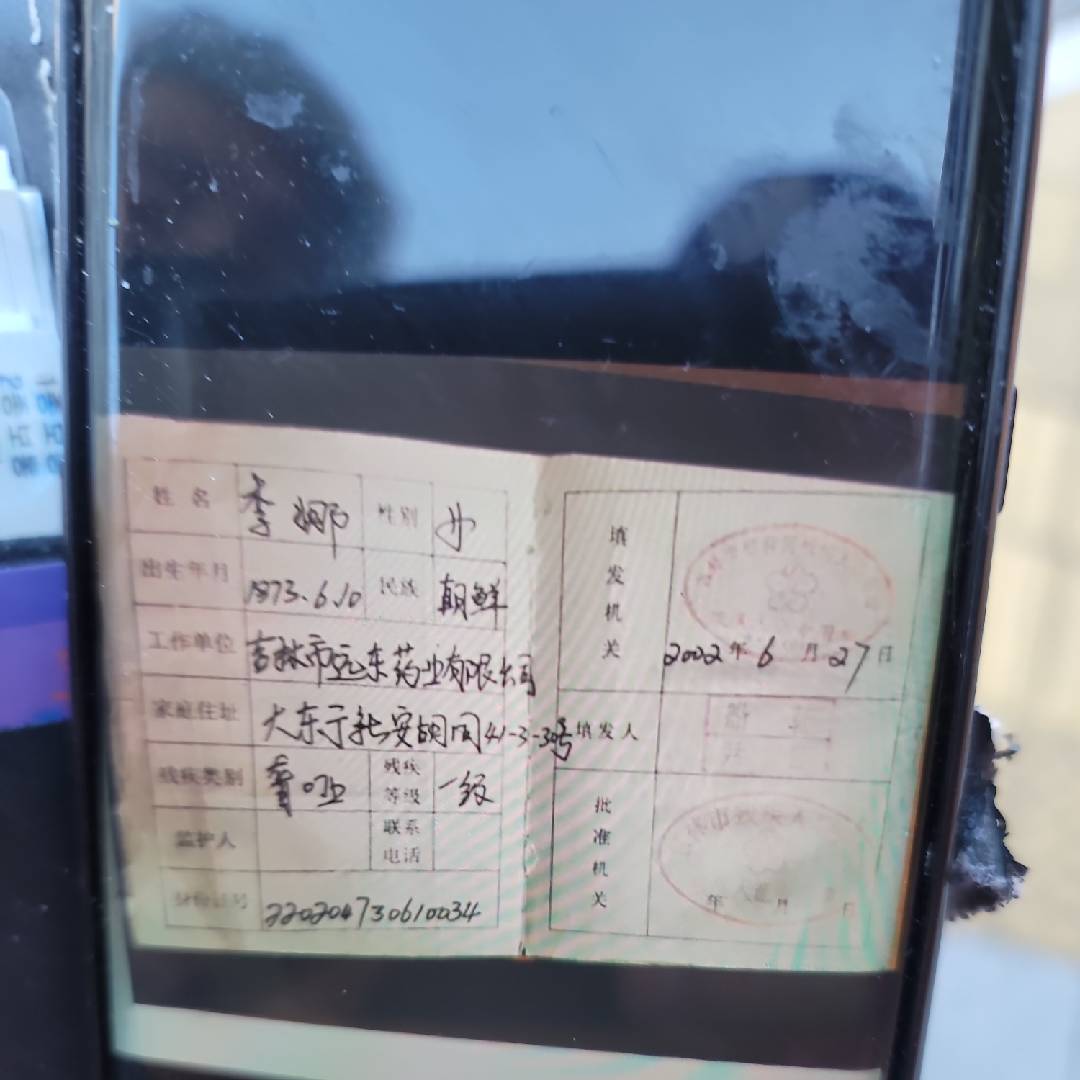 姓名 李娜 性别 女
出生年月 1973.6.10 民族 朝鲜
工作单位 吉林市远东药业有限公司
家庭住址 大东于新安胡同41-3-3号
残疾类别 聋哑 残疾等级 一级
监护人 联系电话
身份证号 220204730610034
填发机关 2002年6月27日
填发人
批准机关 年 月 日